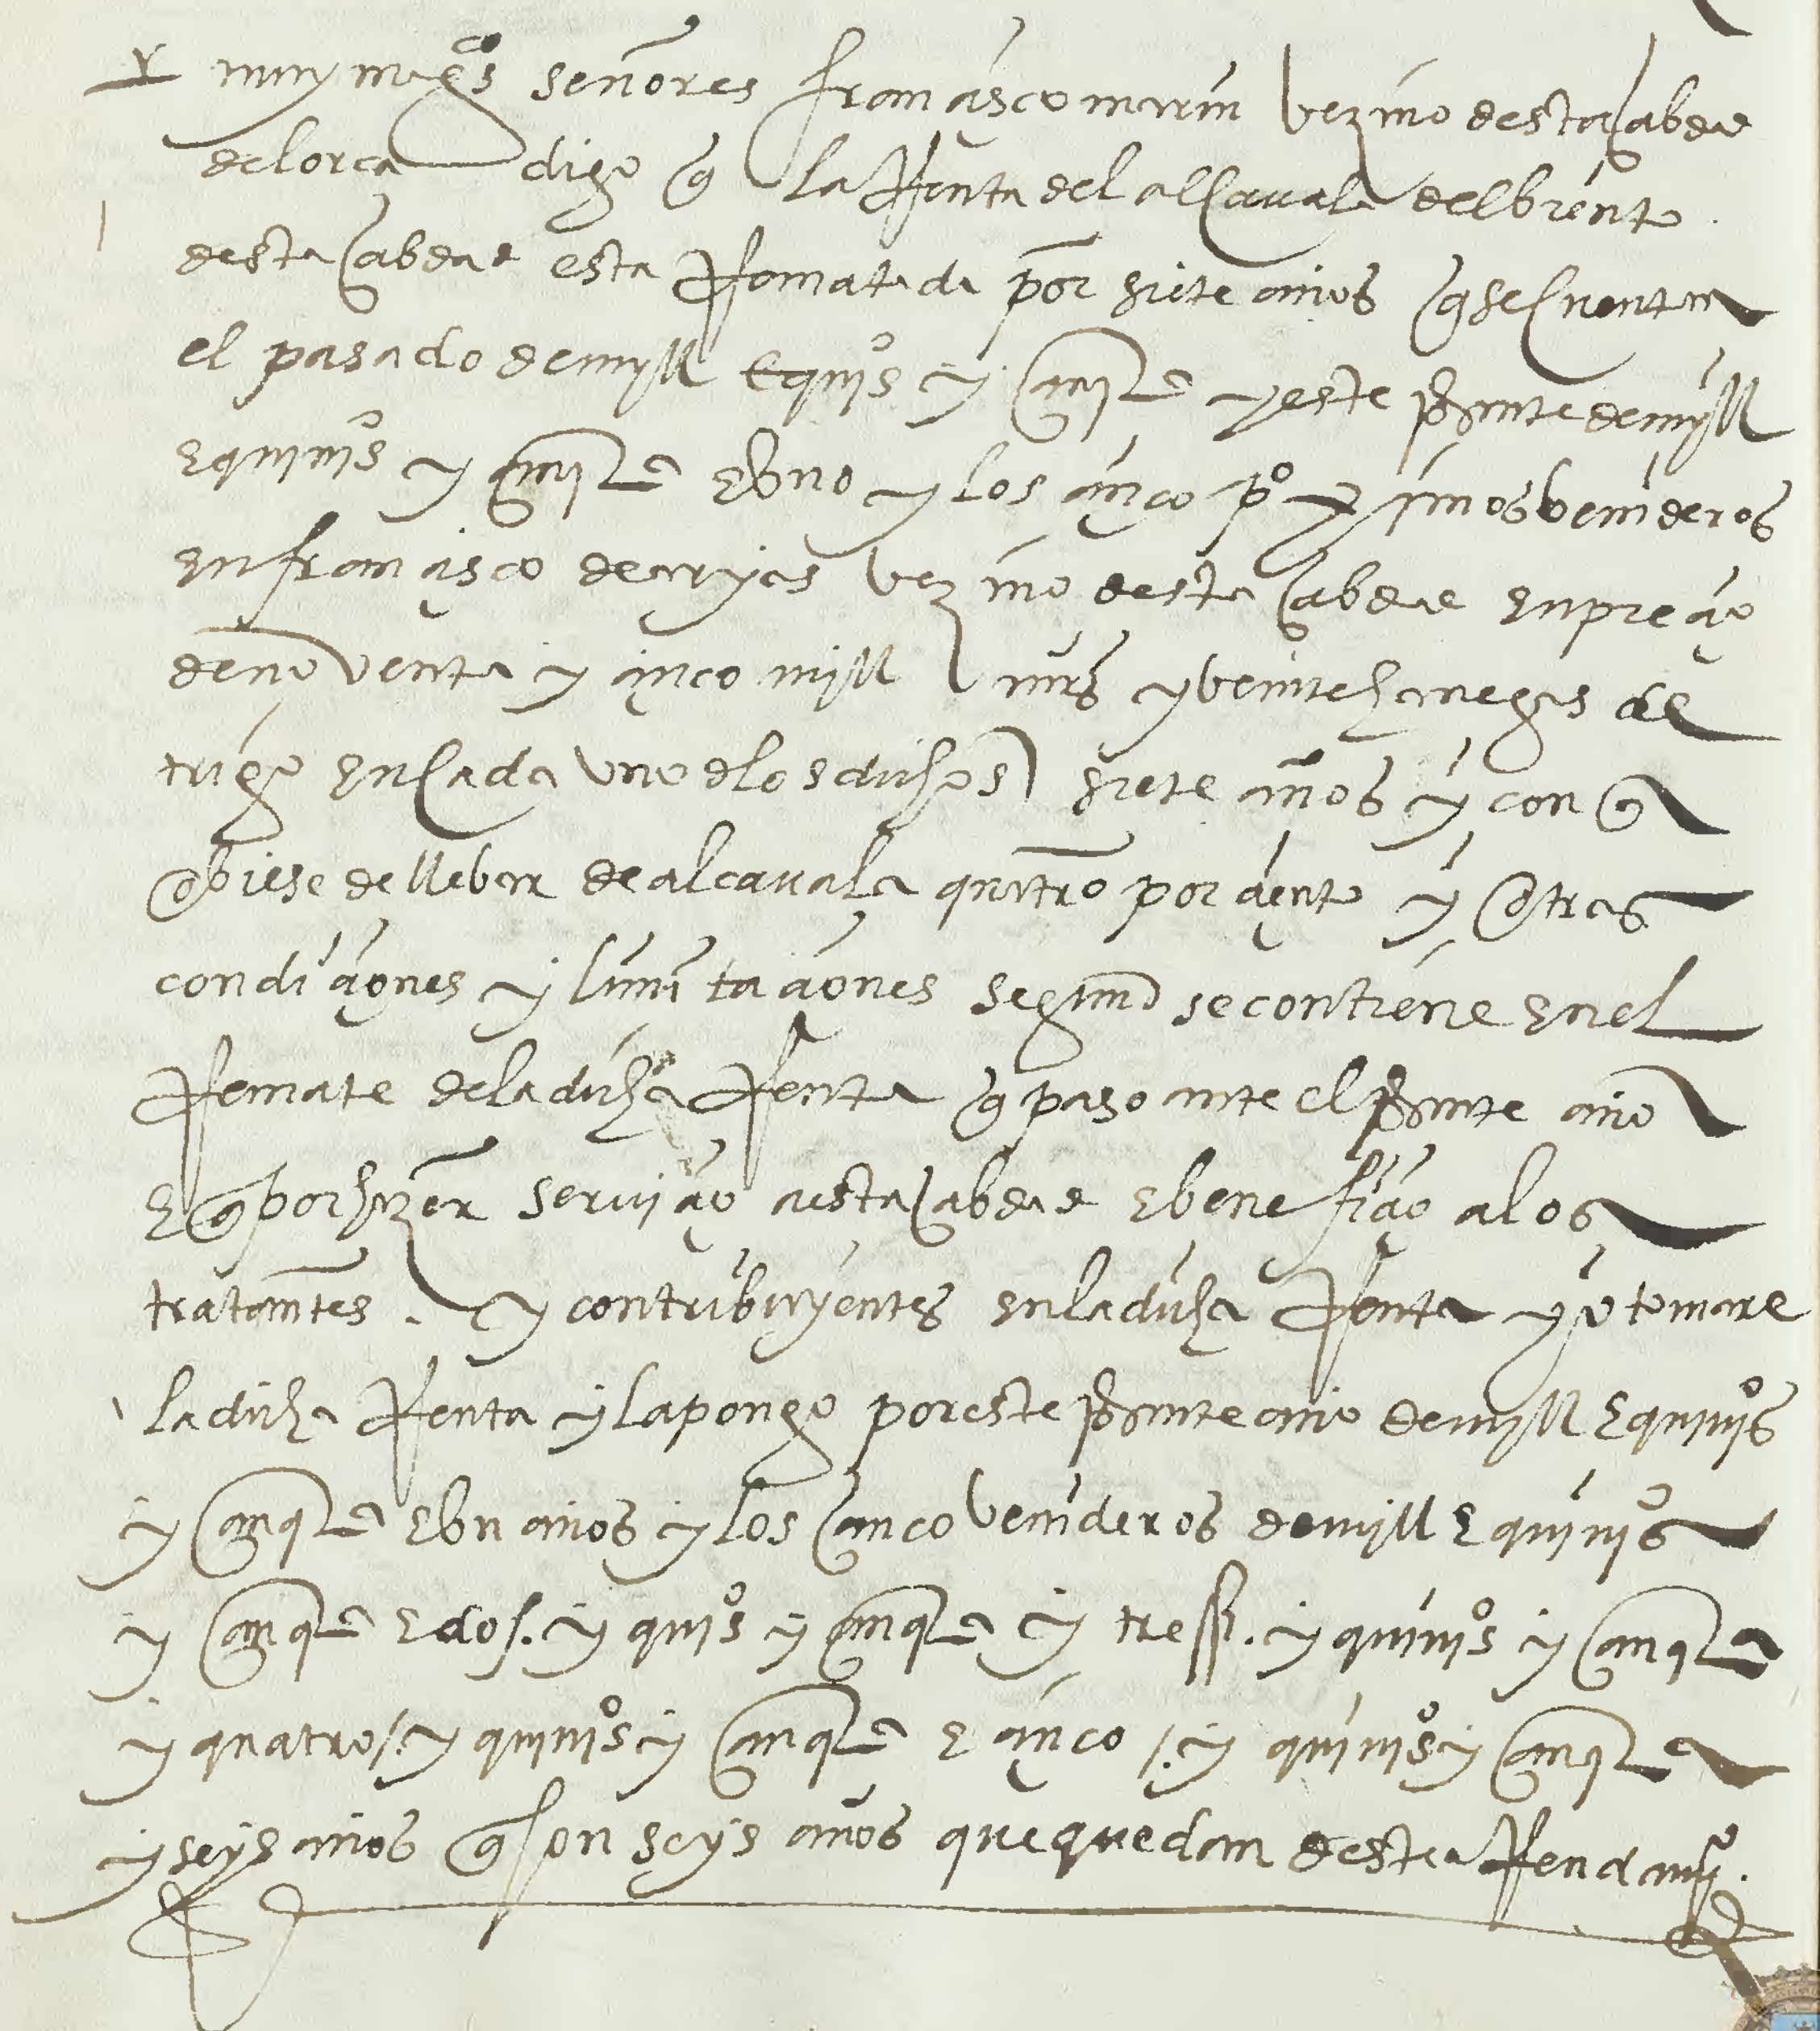 muy magcos señores françisco marin vezino desta çabdad
de lorca digo q la Renta del alcauala del biento
desta çabdad esta Rematada por siete años q se cuentan
el pasado de myll E qujºs y çinqta y este presente de myll
E qujnºs y çinqta E vno y los çinco pº venideros
en françisco de aryas vezino desta çabdad en preçio
de noventa y çinco mjll mrs y veinte hanegas de
trigo en cada vno dlos dichos siete años y con q
obiese de llebar de alcauala quatro por çiento y otras
condiçiones y limitaçiones segund se contiene en el
Remate de la dicha Renta q paso ante el presente año
E q por hazer seruiçio a esta çabdad E benefiçio a los
tratantes . y contribuyentes en la dicha Renta yo tomare
la dicha Renta y la pongo por este presente año de myll E qujnjºs
y çinqta E vn años y los çinco venideros de mjll E qujnjºs
y çinqta E dos . y qujºs y çinqta y tres . y qujnjºs y çinqta
y quatro /. y qujnjºs y çinqta E çinco /. y qujnjºs y çinqta
y seys años q son seys años que quedan deste a Rendamyº .